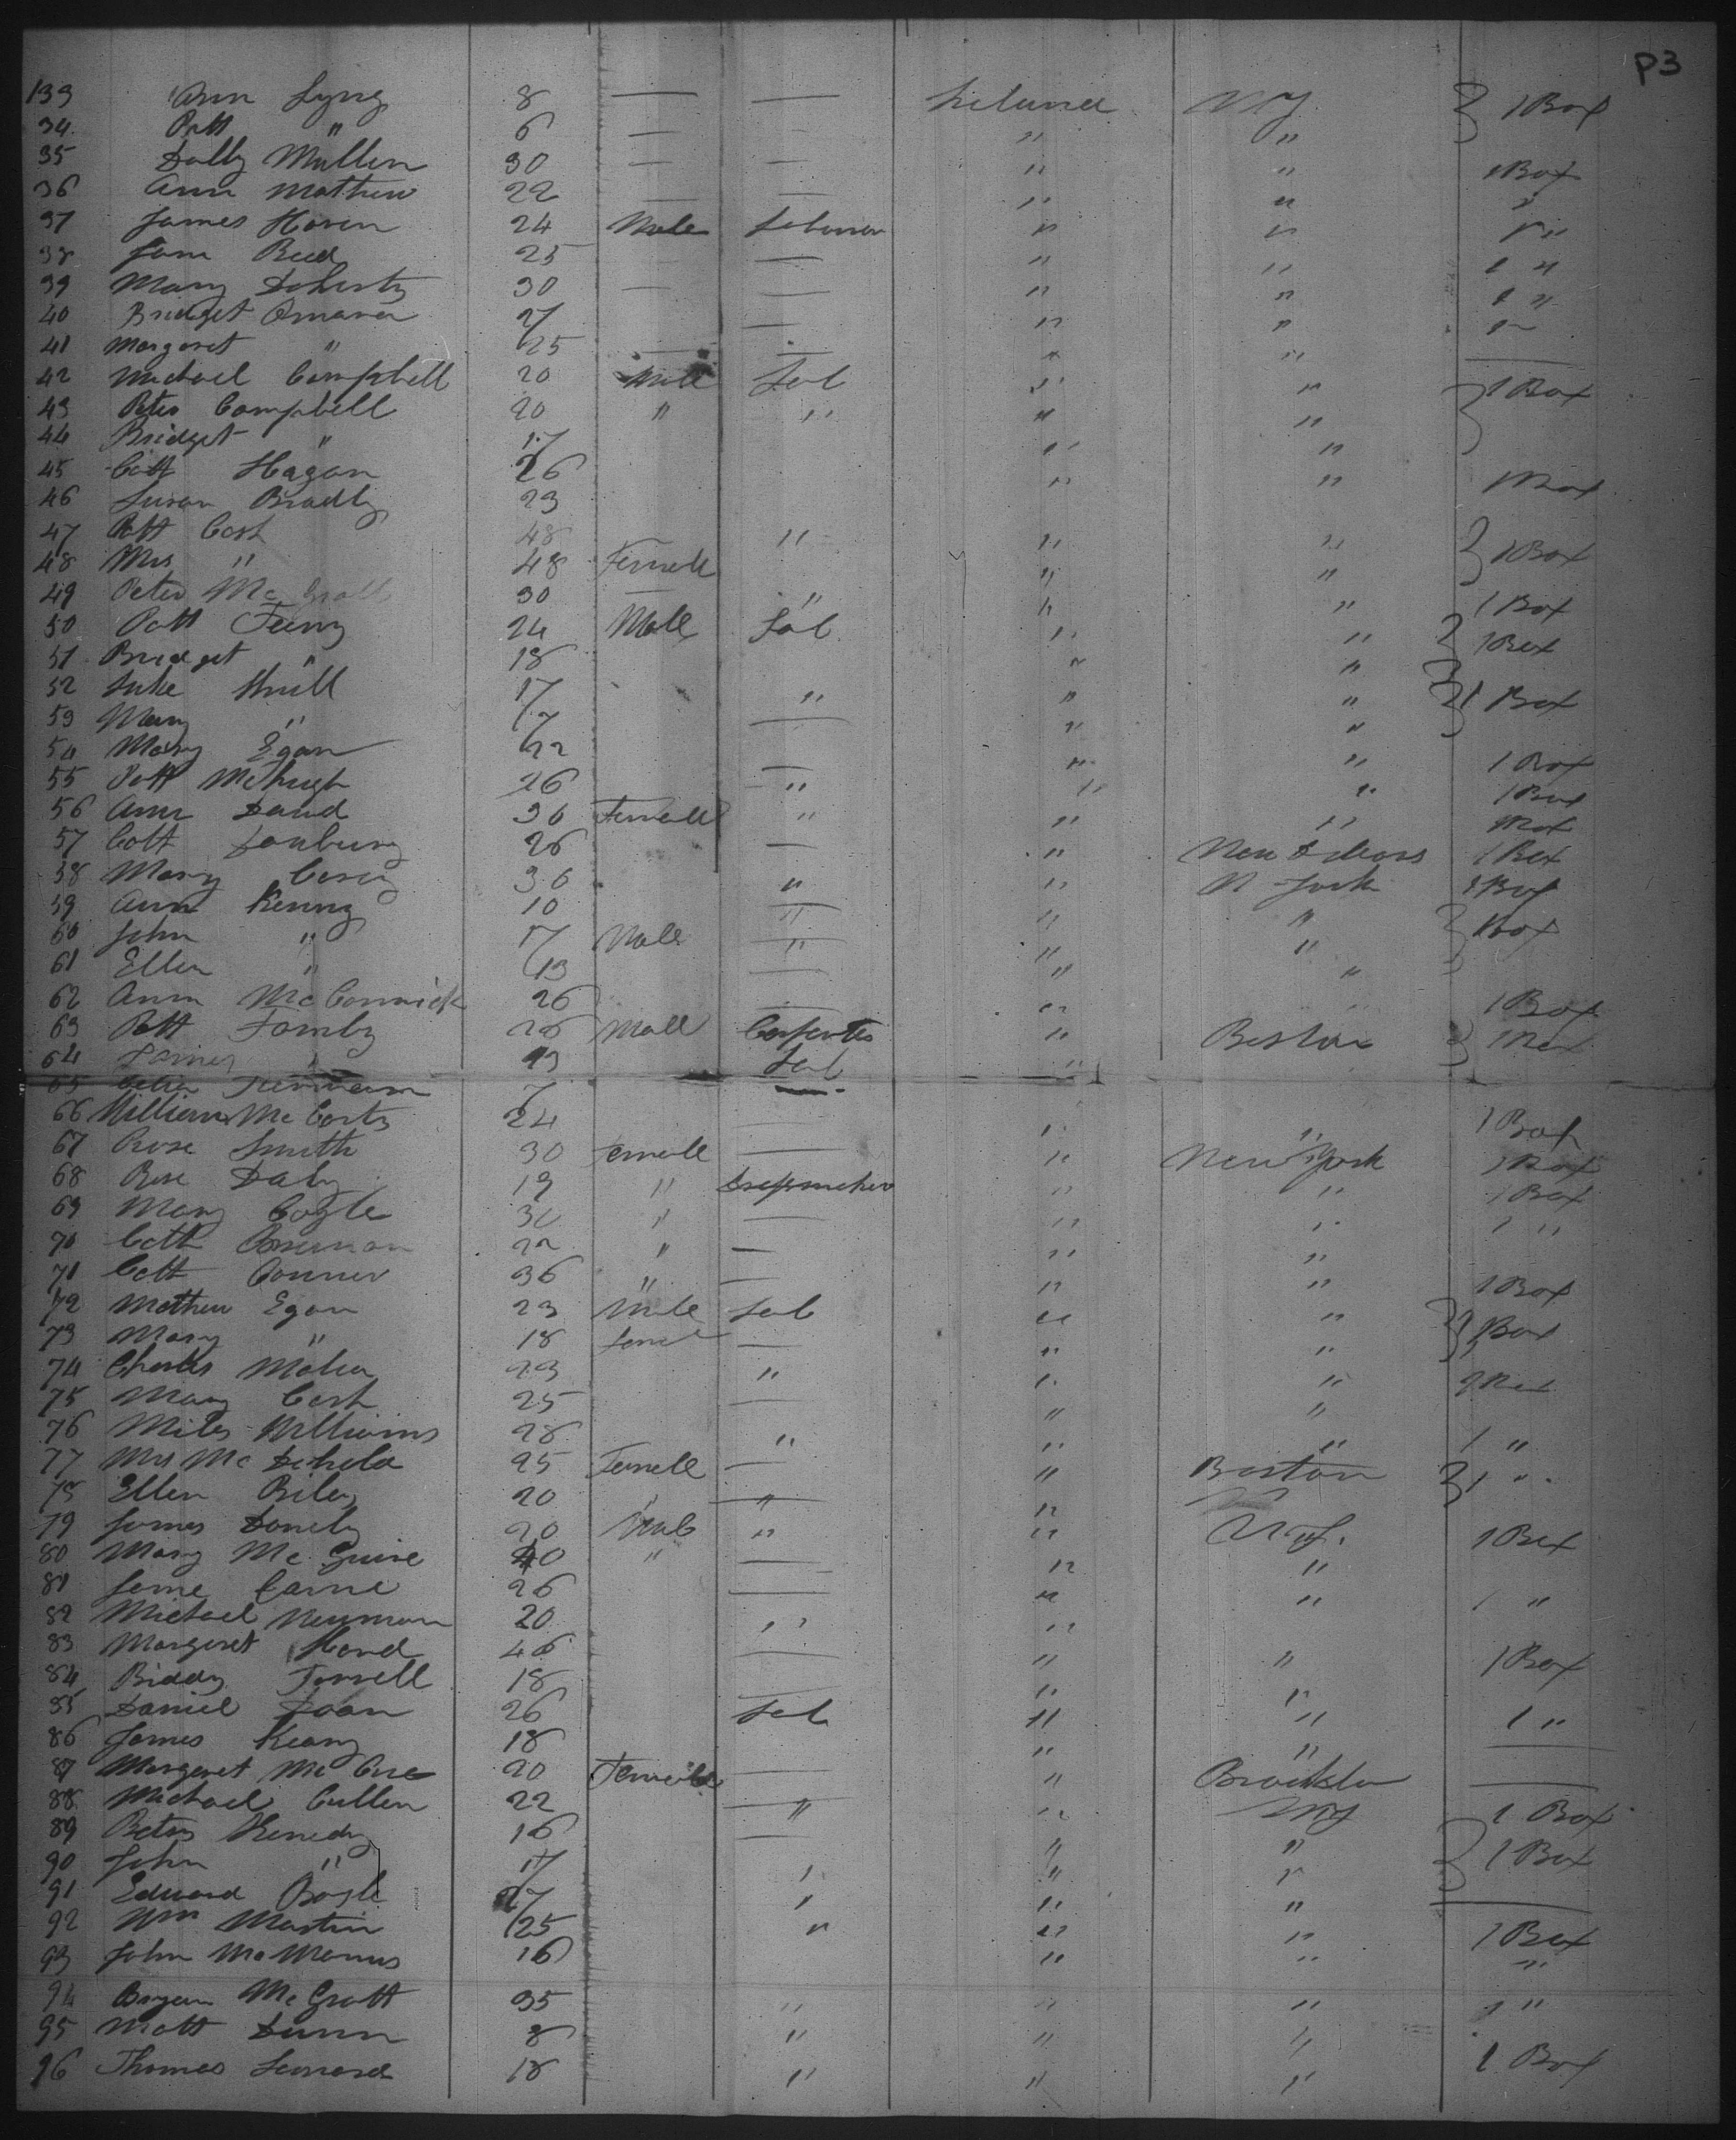 P3
133 Ann Lyng 8 — — Ireland NY } 1 Box
34 Patt " 6 — — " "
35 Dolly Mullen 30 — — " " 1 Box
36 Ann Mathew 22 — " " "
37 James Horen 24 Male Laborer " " 1 "
38 Jane Reed 25 — — " " 1 "
39 Mary Doherty 30 — — " " 1 "
40 Bridget Omara 27 — " " 1 "
41 Margaret " 25 — — " " —
42 Michael Campbell 20 Male Lab " " } 1 Box
43 Peter Campbell 20 " " " "
44 Bridget " 17 " "
45 Catt Hagan 26 " " 1 Box
46 Susan Bradly 23
47 Patt Cash 48 " " " } 1 Box
48 Mrs " 48 Female " "
49 Peter Mc 30 — " " " 1 Box
50 Patt Feeny 24 Male Lab " " } 1 Box
51 Bridget " 18 " "
52 Luke 17 " " " } 1 Box
53 Mary " 17 — " "
54 Mary Egan 22 — " " 1 Box
55 Patt McHugh 26 " " " 1 Box
56 Ann David 30 Female " " " 1 Box
57 Catt 26 — " New Orleans 1 Box
58 Mary Casey 30 " " N York 1 Box
59 Ann Kenny 10 — " " } 1 Box
60 John " 17 Male " " "
61 Ellen " 13 — " "
62 Ann McCormick 26 — " 1 Box
63 Patt 26 Male Carpenter " Boston } 1 Box
64 James " 13 Lab "
65 7 —
66 William McCarty 24 — " " 1 Box
67 Rose Smith 30 Female — " New York 1 Box
68 Rose Daly 19 " Dressmaker " " 1 Box
69 Mary Cogle 30 " — " " 1 "
70 Catt 22 " — " "
71 Catt Conner 36 " — " " 1 Box
72 Mathew Egan 23 Male Lab " " } 1 Box
73 Mary " 18 Feml — " "
74 Charles 23 " " " 1 Box
75 Mary Cash 25 — " "
76 Miles Williams 28 " " " 1 "
77 Mrs Mc 25 Female — " Boston } 1 "
78 Ellen Riley 20 " " "
79 James 20 Male " " N Y. 1 Box
80 Mary McGuire 40 " — " "
81 Jane Carne 26 — " " 1 "
82 Michael Newman 20 " "
83 Margaret Hand 46 — " " 1 Box
84 Biddy Farrell 18 — " "
85 Daniel Doan 26 Lab " " 1 "
86 James Keany 18 " " —
87 Margaret McCue 20 Female — " Brooklin —
88 Michael Cullen 22 " " NY 1 Box
89 Betsy Kenedy 16 — " " } 1 Box
90 John " 17 " " "
91 Edward Bogle 27 " " " —
92 Wm Martin 25 " " " 1 Box
93 John McManus 16 " " "
94 Bryan McGratt 35 " " " 1 "
95 Matt Dunn 8 " " "
96 Thomas Lenard 18 " " " 1 Box